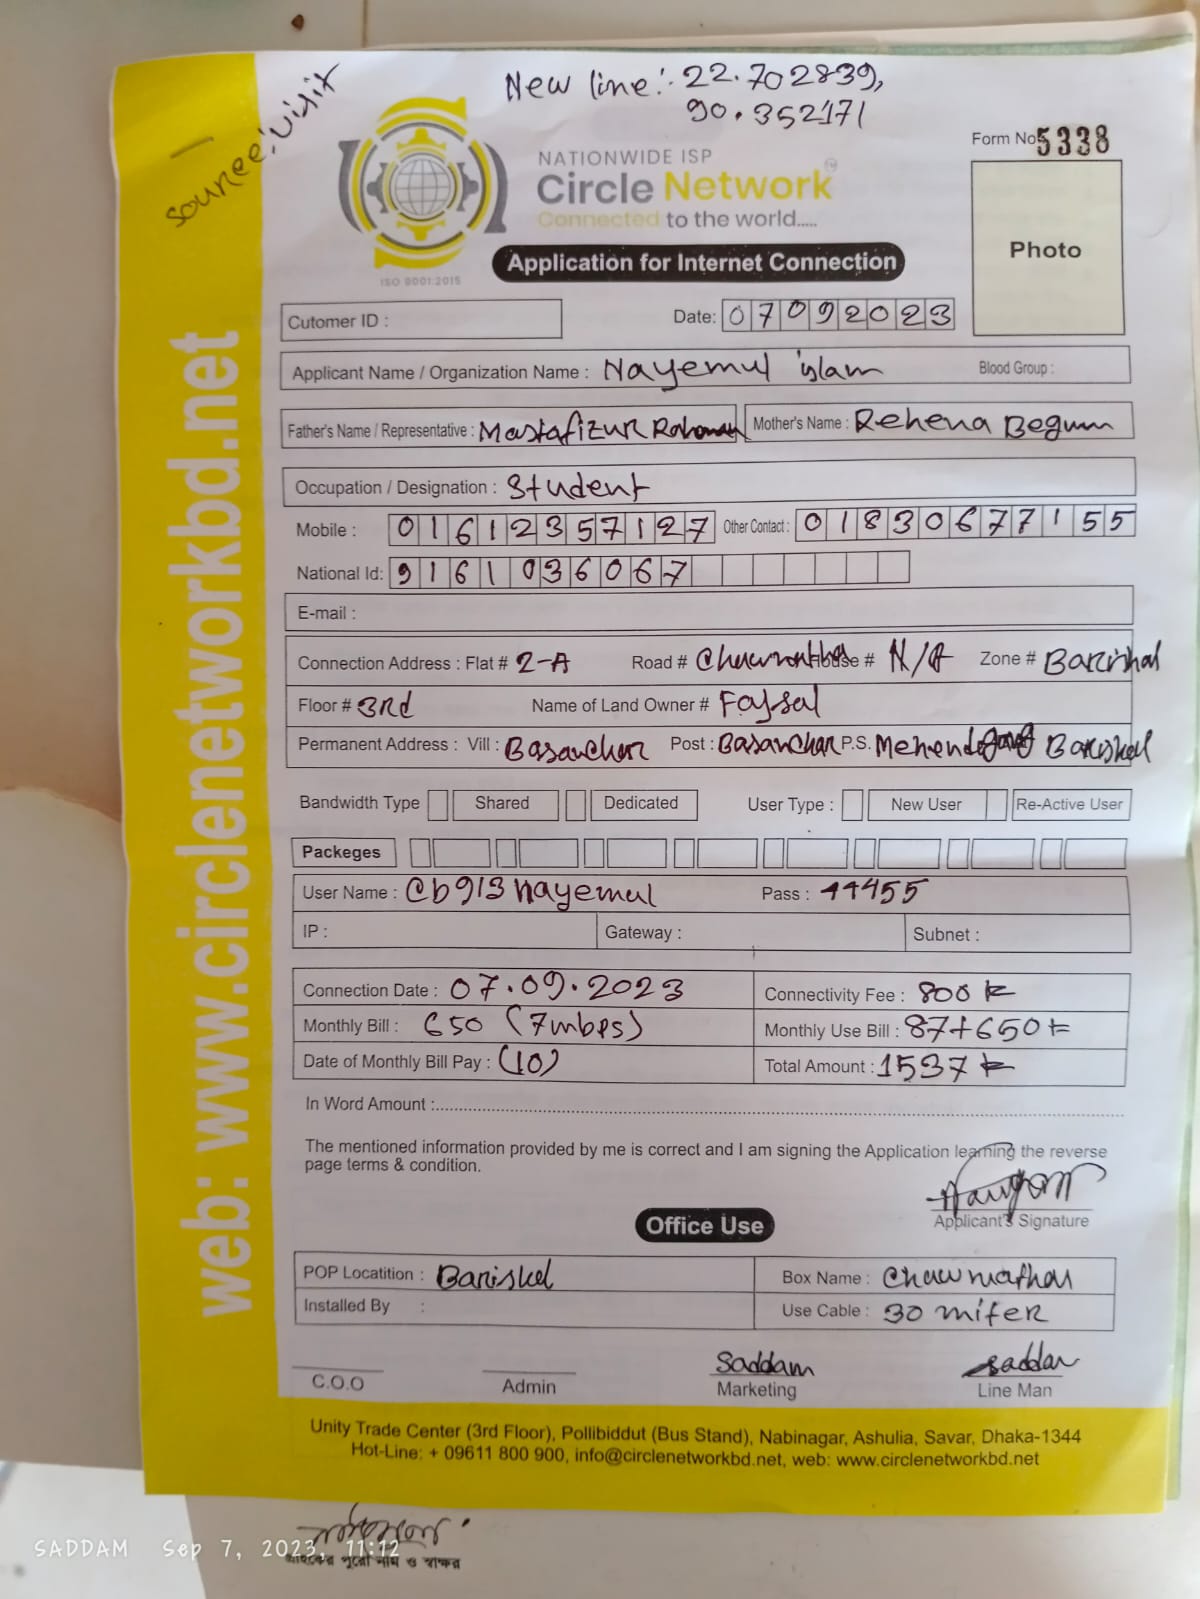 New line: 22.702839,
90.352171
source: visit
Form No 5338
NATIONWIDE ISP
Circle Network
Connected to the world.....
ISO 9001:2015
Application for Internet Connection
Photo
Cutomer ID :
Date: 07092023
Applicant Name / Organization Name : Nayemul islam Blood Group :
Father's Name / Representative : Mostafizur Rahman Mother's Name : Rehena Begum
Occupation / Designation : Student
Mobile : 01612357127 Other Contact : 01830677155
National Id: 9161036067
E-mail :
Connection Address : Flat # 2-A Road # House # N/A Zone # Barishal
Floor # 3rd Name of Land Owner # Faysal
Permanent Address : Vill : Basanchor Post : Basanchar P.S. Barishal
Bandwidth Type Shared Dedicated User Type : New User Re-Active User
Packeges
User Name : cb913nayemul Pass : 11455
IP : Gateway : Subnet :
Connection Date : 07.09.2023 Connectivity Fee : 800
Monthly Bill : 650 (7mbps) Monthly Use Bill : 87+650
Date of Monthly Bill Pay : (10) Total Amount : 1537
In Word Amount :
The mentioned information provided by me is correct and I am signing the Application learning the reverse
page terms & condition.
Applicant's Signature
Office Use
POP Locatition : Barishal Box Name :
Installed By : Use Cable : 30 miter
Saddam saddam
C.O.O Admin Marketing Line Man
Unity Trade Center (3rd Floor), Pollibiddut (Bus Stand), Nabinagar, Ashulia, Savar, Dhaka-1344
Hot-Line: + 09611 800 900, info@circlenetworkbd.net, web: www.circlenetworkbd.net
web: www.circlenetworkbd.net
SADDAM Sep 7, 2023, 11:12
গ্রাহকের পুরো নাম ও স্বাক্ষর